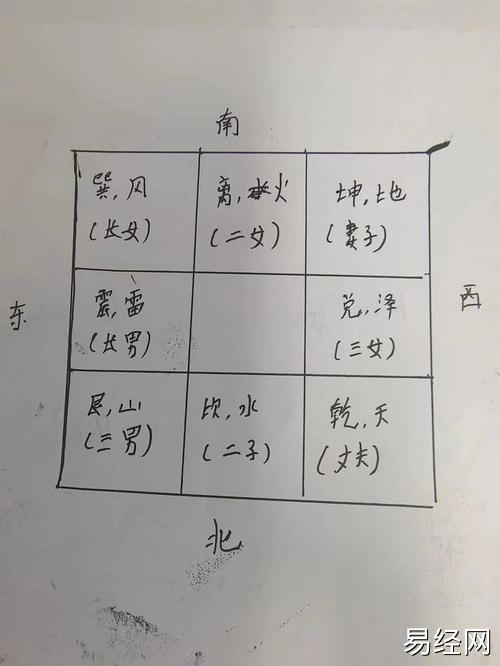 南
巽,风
(长女)
离,火
(二女)
坤,地
(妻子)
东
震,雷
(长男)
兑,泽
(三女)
西
艮,山
(三男)
坎,水
(二子)
乾,天
(丈夫)
北
易经网